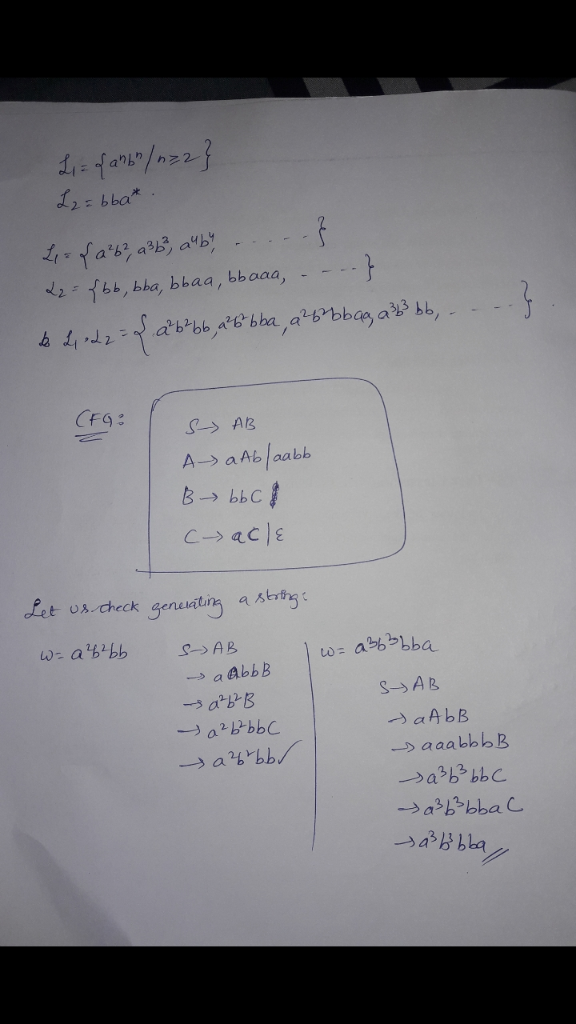 L₁ = {aⁿbⁿ / n ≥ 2}
L₂ = bba* .
L₁ = {a²b², a³b³, a⁴b⁴, . . . . . . }
L₂ = {bb, bba, bbaa, bbaaa, - - - - }
L₁.L₂ = {a²b²bb, a²b²bba, a²b²bbaa, a³b³bb, - . . . . } .
CFG:
S → AB
A → aAb | aabb
B → bbC
C → aC | ε
Let us check generating a string:
w = a²b²bb
S → AB
→ aabbB
→ a²b²B
→ a²b²bbC
→ a²b²bb ✓
w = a³b³bba
S → AB
→ aAbB
→ aaabbbB
→ a³b³bbC
→ a³b³bbaC
→ a³b³bba